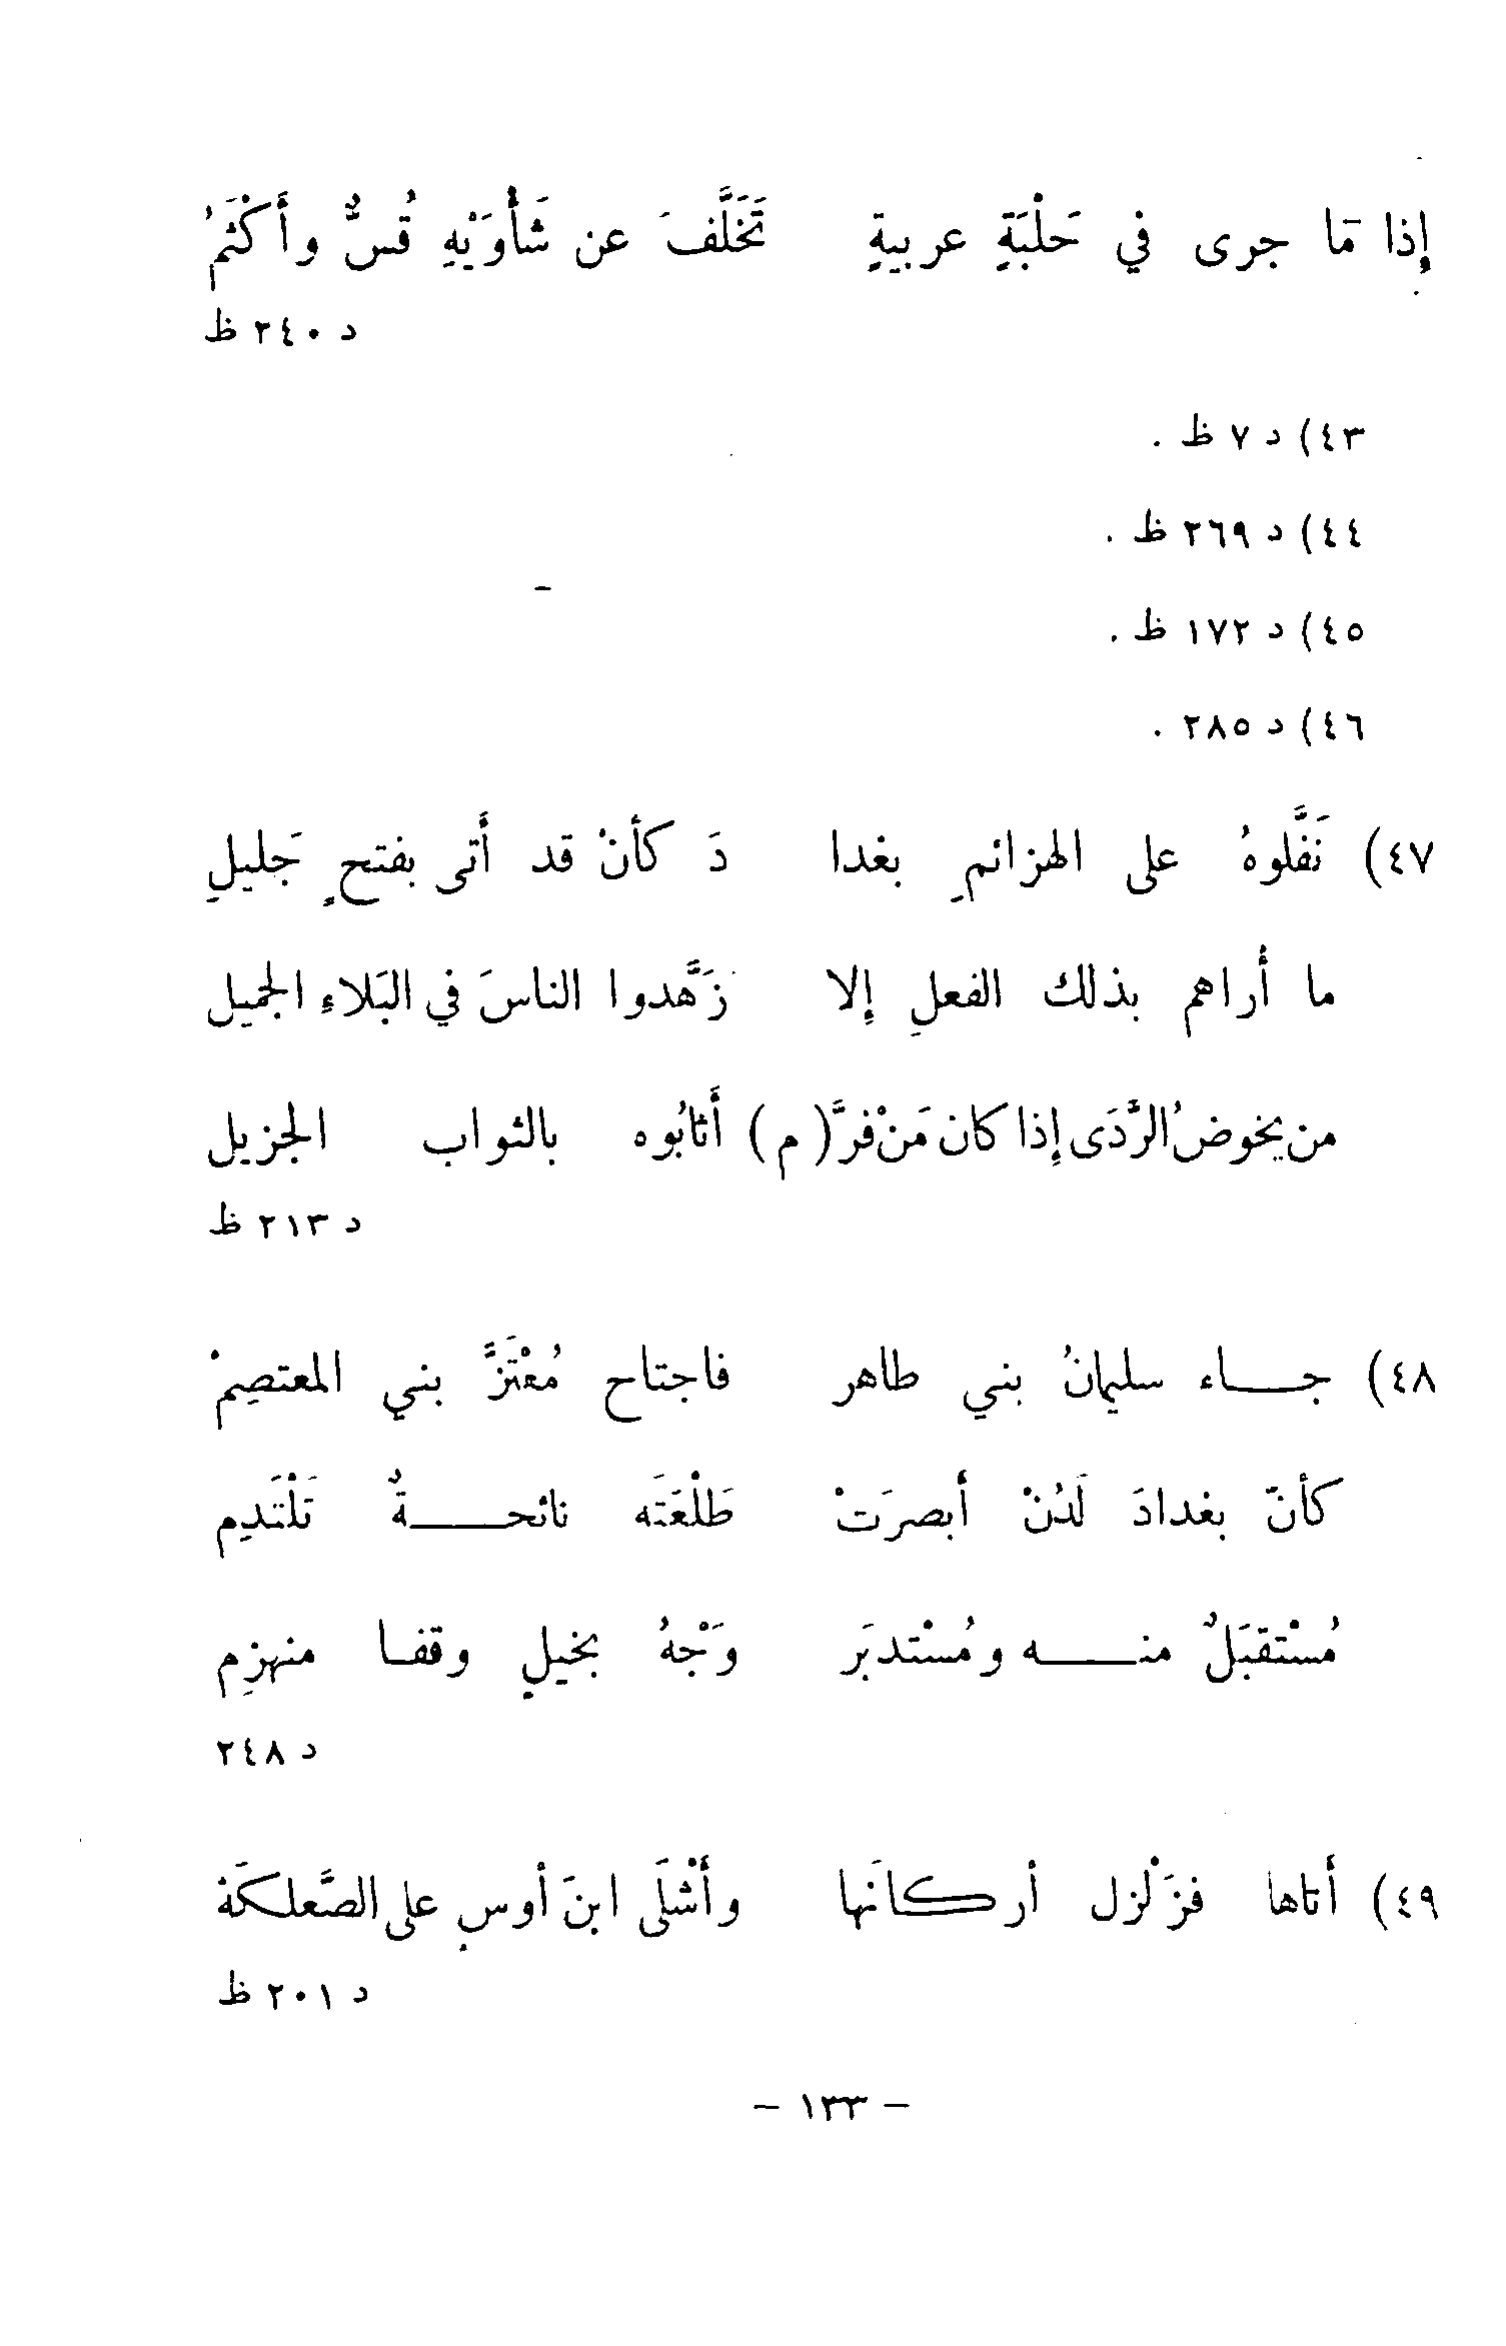 إِذا مَا جرى في حَلْبَةٍ عربيةٍ تَخَلَّفَ عن شَأْوَيْهِ قُسٌّ وأَكْثَمُ
د ٢٤٠ ظ
٤٣) د ٧ ظ .
٤٤) د ٢٦٩ ظ .
٤٥) د ١٧٢ ظ .
٤٦) د ٢٨٥ .
٤٧) نَفَّلوهُ على الهزائمِ بغدا دَ كأنْ قد أَتى بفتحٍ جَليلِ
ما أراهم بذلك الفعلِ إلا زَهَّدوا الناسَ في البَلاءِ الجميل
من يخوضُ الرَّدَى إِذا كان مَنْ فرَّ (م) أَثابُوه بالثواب الجزيل
د ٢١٣ ظ
٤٨) جـــاء سليمانُ بني طاهر فاجتاح مُعْتَزَّ بني المعتصِمْ
كأنّ بغدادَ لَدُنْ أبصرَتْ طَلْعَتَه نائحـــةٌ تَلْتَدِم
مُسْتقبَلٌ منـــه ومُسْتدبَر وَجْهُ بخيلٍ وقفـا منهزِم
د ٢٤٨
٤٩) أَتاها فزَلْزل أركـانَها وأَشْلَى ابنَ أوسٍ على الصَّعلـكَة
د ٢٠١ ظ
– ١٣٣ –